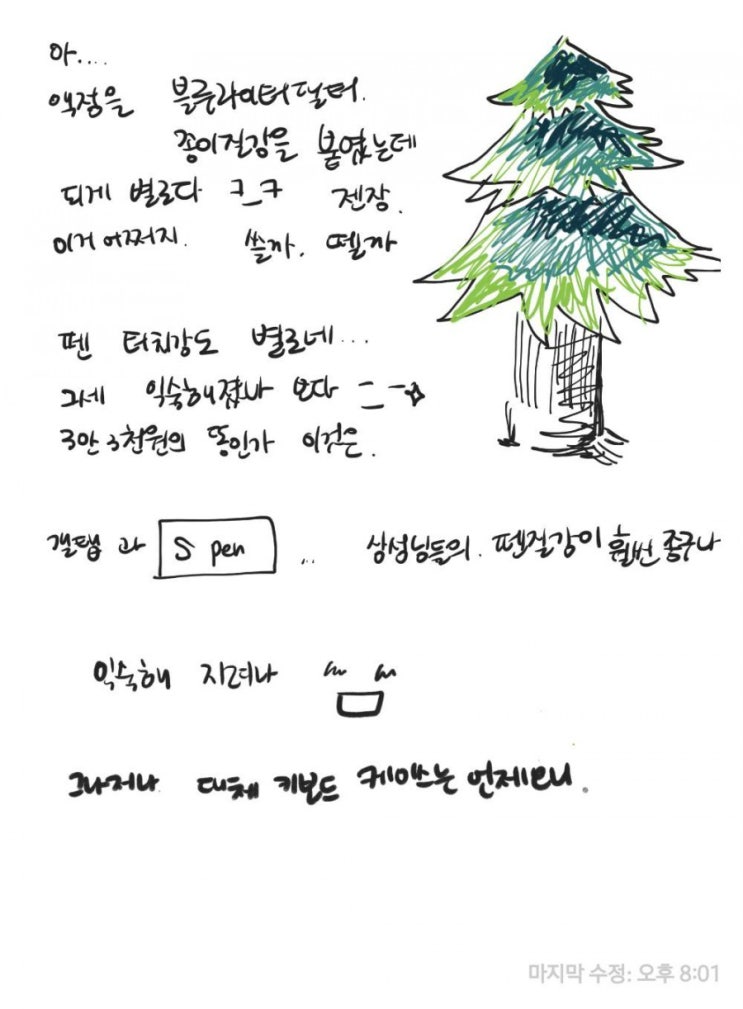 아....
액정을 블루라이터필터.
종이질감을 붙였는데
되게 별로다 ㅋ_ㅋ 젠장.
이거 어쩌지. 쓸까. 뗄까
펜 터치감도 별로네...
그세 익숙해졌나 보다
3만 3천원의 똥인가 이것은.
갤탭 과 S pen ... 삼성님들의. 펜질감이 훨번 좋구나
익숙해 지려나
그나저나 대체 키보드 케이스는 언제오니.
마지막 수정: 오후 8:01